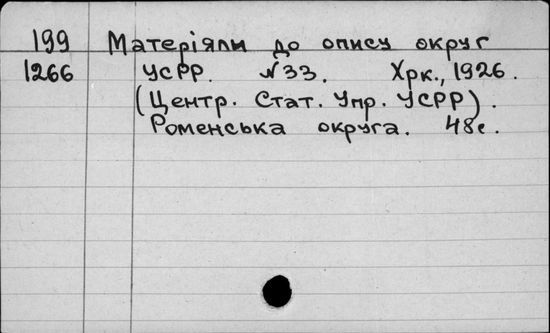 199 Матеріяли до опису округ
1266 УСРР. №33. Хрк., 1926.
(Центр. Стат. Упр. УСРР).
Роменська округа. 48с.